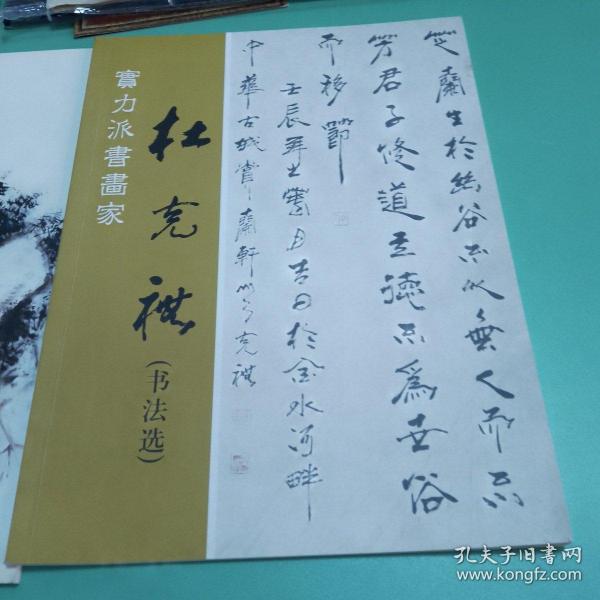 實力派書畫家
杜克
(书法选)
芝蘭生於幽谷不以無人而不
芳君子修道立德不爲世俗
而移節
壬辰年之月吉日於金水河畔
中華古城蘭軒克
孔夫子旧书网
www.kongfz.com